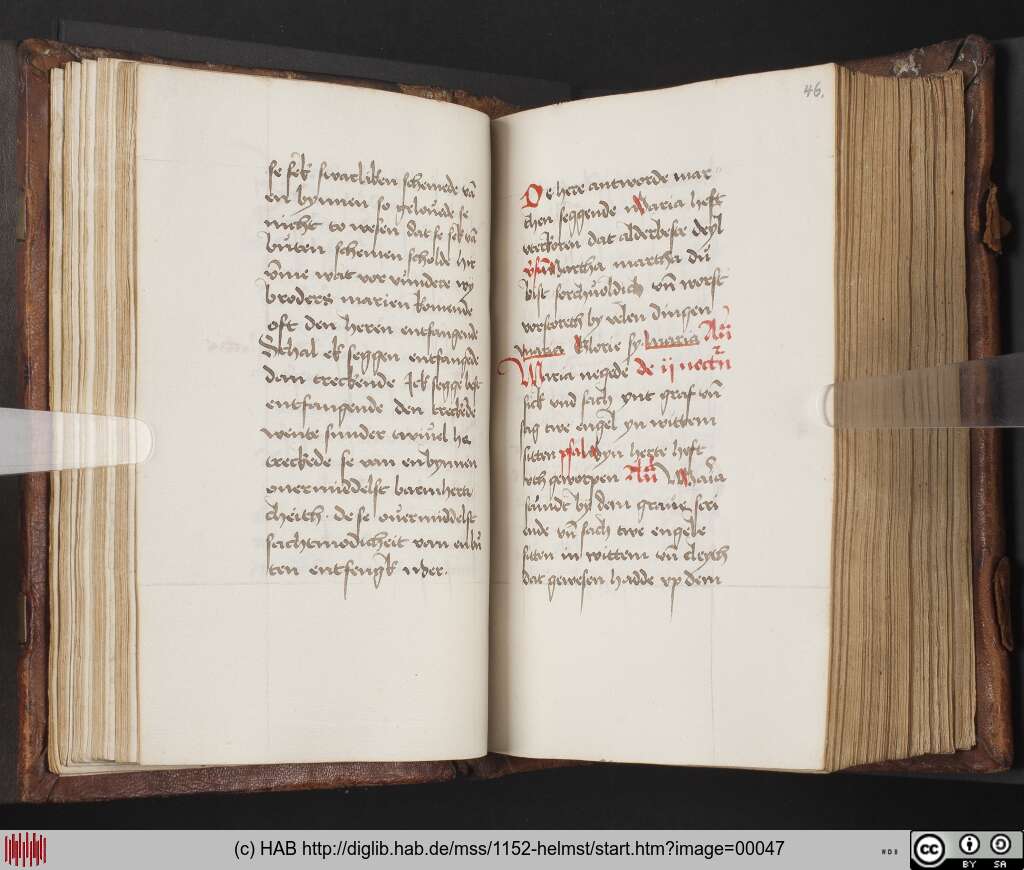 se sek swarliken schemede van
en bynnen so gelouede se
nicht to wesen dat se sek van
buten schemen scholde hir
vmme wat vor wundere wy
broders marien komende
oft den heren entfangende
Schal ek seggen entfangede
dan treckende Jck segge best
entfangende den treckede
wente sunder twiuel he
treckede se van enbynnen
ouermiddelst barmherti
cheith · de se ouermiddelst
sachtmodicheit van enbu
ten entfengk
46.
De here antworde mar
then seggende Maria heft
vterkoren dat alderbeste deyl
Martha martha du
bist sorchuoldich vnd worst
vorstoreth by velen dingen
maria Glorie sy maria
Maria negede de ij noctrn
sick vnd sach ynt graf vnd
sag twe engel yn wittem
sitten psalm Myn herte heft
vth geworpen Maria
stundt by dem graue scri
ende vnd sach twe engele
sitten in wittem vnd cleyth
dat gewesen hadde vp dem
(c) HAB http://diglib.hab.de/mss/1152-helmst/start.htm?image=00047
WDB
cc BY SA